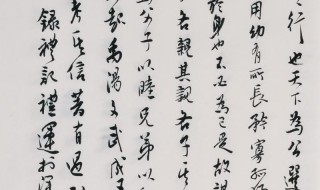 行也天下為公選
用幼有所長矜寡孤
於身也不必為己是故謀
各親其親各子其
父子以睦兄弟以
起禹湯文武成王
考其信著有過
錄禮記禮運